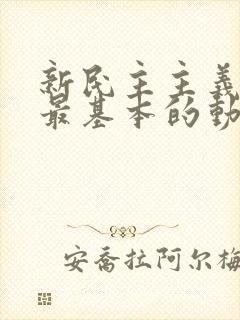 新民主主義
最基本的動
安喬拉阿尔梅